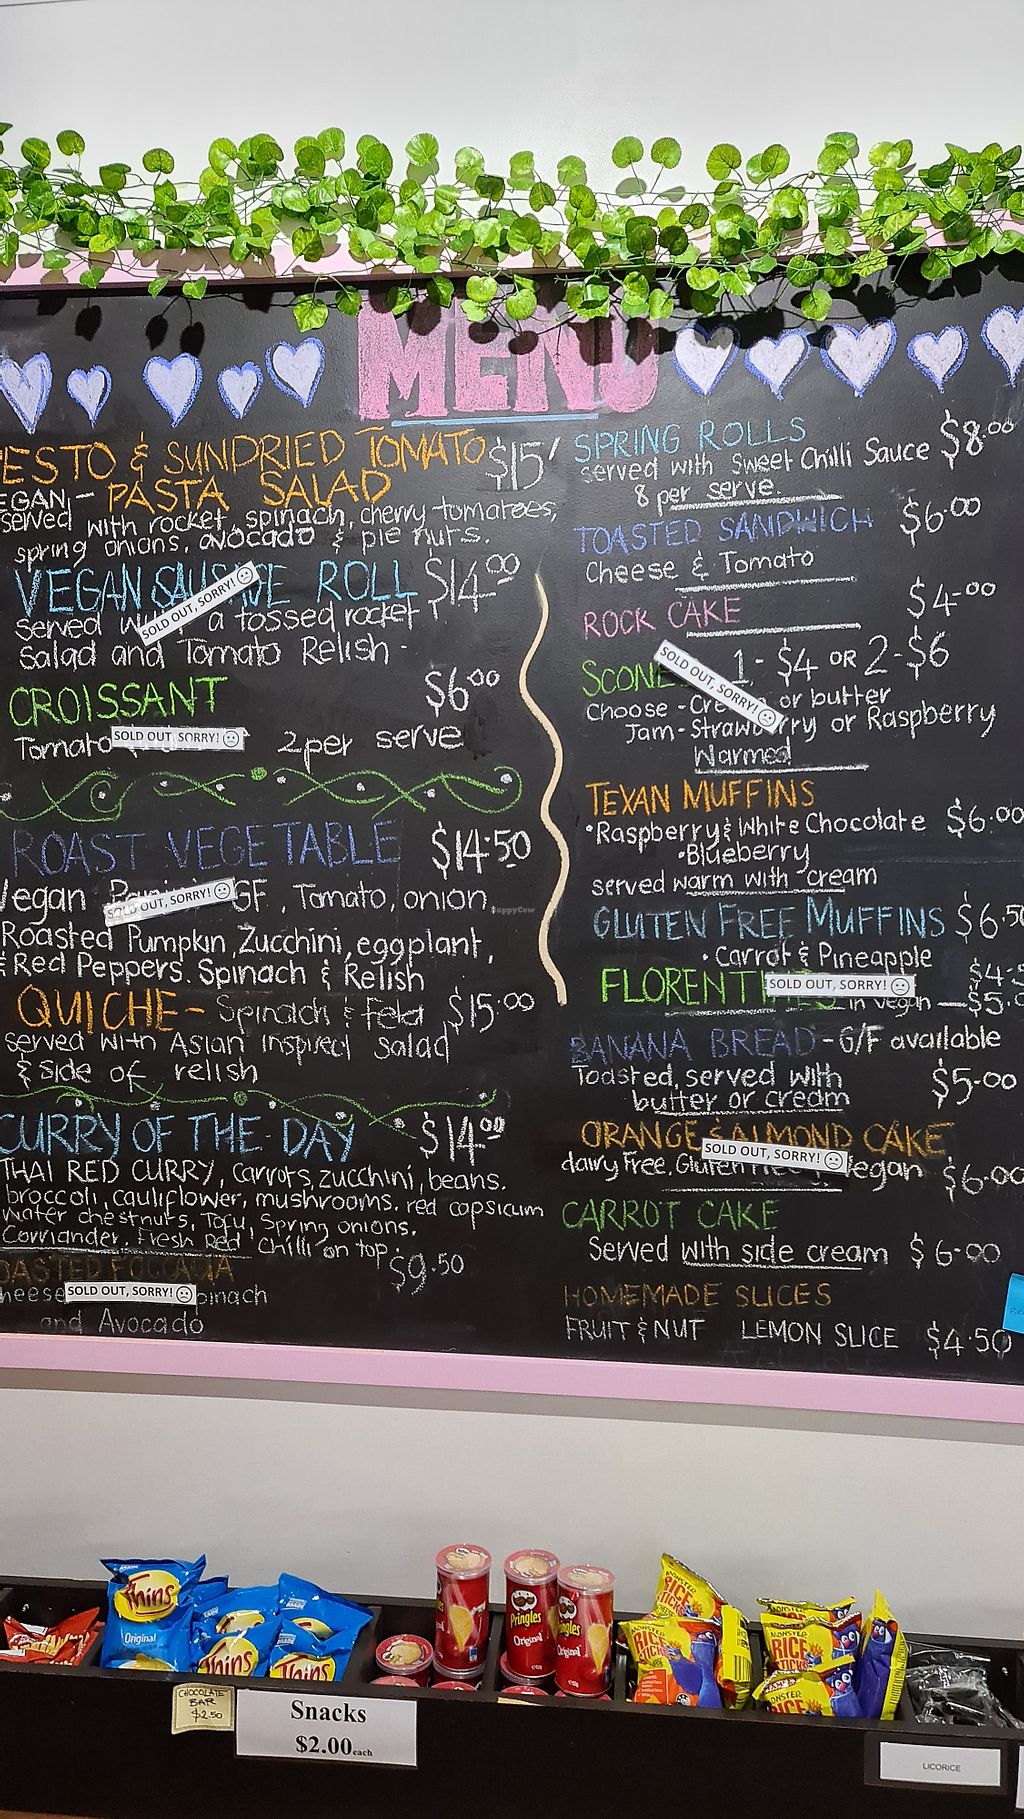 MENU
ESTO & SUNDRIED TOMATO $15'
EGAN - PASTA SALAD
served with rocket, spinach, cherry tomatoes,
spring onions, avocado & pie nuts.
VEGAN SAUSAGE ROLL $14.00
SOLD OUT, SORRY!
served with a tossed rocket
salad and Tomato Relish -
CROISSANT $6.00
Tomato SOLD OUT, SORRY! 2 per serve
ROAST VEGETABLE $14.50
Vegan SOLD OUT, SORRY! GF, Tomato, onion
Roasted Pumpkin, Zucchini, eggplant,
& Red Peppers. Spinach & Relish
QUICHE - Spinach & Feta $15.00
served with Asian inspired salad
& side of relish
CURRY OF THE DAY $14.00
THAI RED CURRY, carrots, zucchini, beans.
broccoli, cauliflower, mushrooms. red capsicum
water chestnuts, Tofu, Spring onions.
Corriander, Fresh Red Chilli on top.
OASTED FOCCACIA $9.50
heese SOLD OUT, SORRY! pinach
and Avocado
SPRING ROLLS $8.00
served with Sweet Chilli Sauce
8 per serve
TOASTED SANDWICH $6.00
Cheese & Tomato
ROCK CAKE $4.00
SCONE 1 - $4 OR 2 - $6
SOLD OUT, SORRY!
Choose - Cream or butter
Jam - Strawberry or Raspberry
Warmed
TEXAN MUFFINS
•Raspberry & White Chocolate $6.00
•Blueberry
served warm with cream
GLUTEN FREE MUFFINS $6.50
• Carrot & Pineapple
FLORENTINES SOLD OUT, SORRY! $4.5
in vegan — $5.0
BANANA BREAD - G/F available
Toasted, served with $5.00
butter or cream
ORANGE & ALMOND CAKE
SOLD OUT, SORRY!
dairy free, Gluten Free Vegan $6.00
CARROT CAKE
Served with side cream $6.00
HOMEMADE SLICES
FRUIT & NUT LEMON SLICE $4.50
HappyCow
Thins
Original
Thins
Thins
Pringles
Original
Pringles
Original
MONSTER
RICE
STICKS
MONSTER
RICE
STICKS
MONSTER
RICE
STICKS
MONSTER
RICE
STICKS
CHOCOLATE
BAR
$2.50
Snacks
$2.00 each
LICORICE